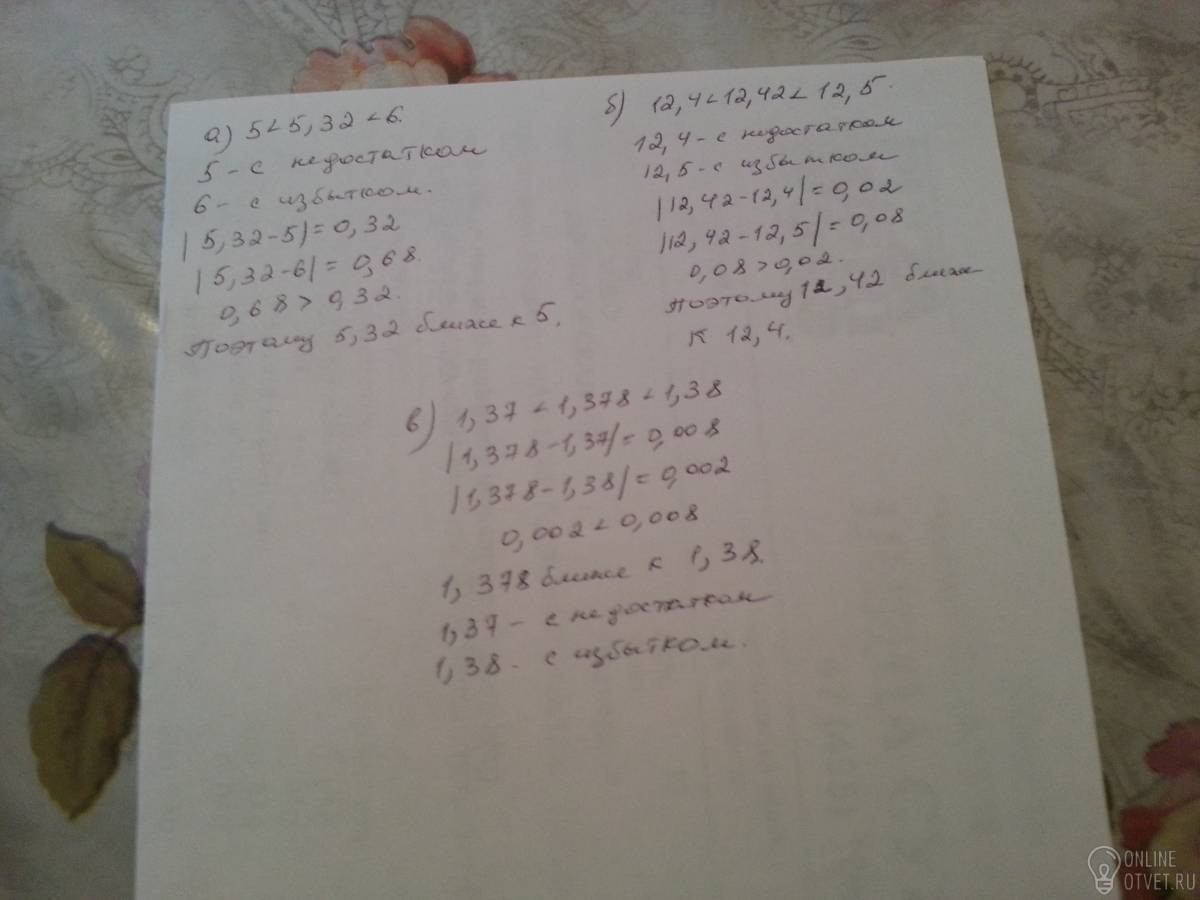 а) 5 < 5,32 < 6.
5 - с недостатком
6 - с избытком.
|5,32-5| = 0,32
|5,32-6| = 0,68.
0,68 > 0,32.
Поэтому 5,32 ближе к 5.
б) 12,4 < 12,42 < 12,5.
12,4 - с недостатком
12,5 - с избытком
|12,42-12,4| = 0,02
|12,42-12,5| = 0,08
0,08 > 0,02.
Поэтому 12,42 ближе
к 12,4.
в) 1,37 < 1,378 < 1,38
|1,378-1,37| = 0,008
|1,378-1,38| = 0,002
0,002 < 0,008
1,378 ближе к 1,38.
1,37 - с недостатком
1,38 - с избытком.
ONLINE
OTVET.RU